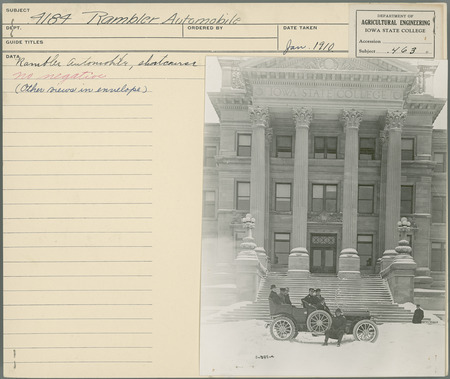 SUBJECT 9184 Rambler Automobile
DEPT. ORDERED BY DATE TAKEN
GUIDE TITLES Jan. 1910
DEPARTMENT OF
AGRICULTURAL ENGINEERING
IOWA STATE COLLEGE
Accession
Subject .463
DATA Rambler Automobile,
no negative
(Other views in envelope)
IOWA STATE COLLEGE